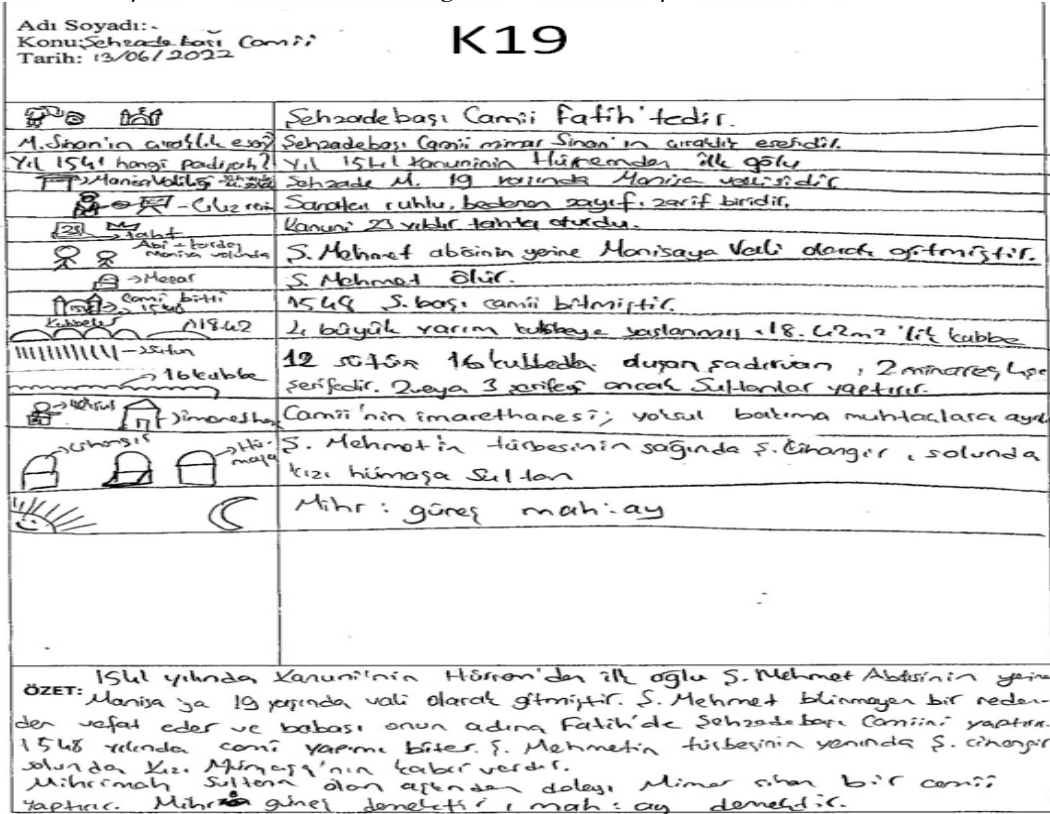 Adı Soyadı:-
Konu:Şehzadebaşı Camii
Tarih: 13/06/2022
K19
Şehzadebaşı Camii Fatih'tedir.
M.Sinan'ın çıraklık eseri? Şehzadebaşı Camii mimar Sinan'ın çıraklık eseridir.
Yıl 1541 hangi padişah? Yıl 1541 Kanuninin Hürremden ilk oğlu
→Manisa Valiliği Şehzade M. 19 yaşında Manisa valisidir
-Cılız resim Sanatçı ruhlu, bedenen zayıf, zarif biridir.
23 →taht Kanuni 23 yıldır tahta oturdu.
Abi - kardeş Manisa yolunda Ş. Mehmet abisinin yerine Manisaya Vali olarak gitmiştir.
→Mezar Ş. Mehmet ölür.
Cami bitti 1548 1548 Ş. başı camii bitmiştir.
Kubbeler 18.42 4 büyük yarım kubbeye yaslanmış 18.42m² 'lik kubbe
→sütun 12 sütun 16 kubbeden oluşan şadırvan, 2 minareş
→16 kubbe şerifedir. 2 veya 3 şerifeyi ancak Sultanlar yaptırır.
→yoksul →imarethane Camii'nin imarethanesi; yoksul bakıma muhtaçlara
→Cihangir →Hümaşa Ş. Mehmet'in türbesinin sağında Ş. Cihangir, solunda
kızı hümaşa Sultan
Mihr: güneş mah: ay
1541 yılında Kanuni'nin Hürrem'den ilk oğlu Ş. Mehmet Abisinin yerine
ÖZET: Manisa'ya 19 yaşında vali olarak gitmiştir. Ş. Mehmet bilinmeyen bir neden-
den vefat eder ve babası onun adına Fatih'de Şehzadebaşı Camiini yaptırır.
1548 yılında cami yapımı biter. Ş. Mehmetin türbesinin yanında Ş. cihangir
solunda kızı Hümaşa'nın kabir vardır.
Mihrimah Sultana olan aşkından dolayı Mimar sinan bir camii
yaptırır. Mihr güneş demektir, mah: ay demektir.